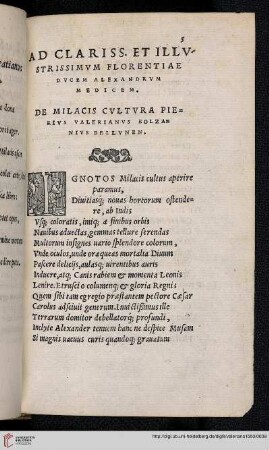 5
AD CLARISS. ET ILLV-
STRISSIMVM FLORENTIAE
DVCEM ALEXANDRVM
MEDICEM,
DE MILACIS CVLTVRA PIE-
RIVS VALERIANVS BOLZA-
NIVS BELLVNEN.
IGNOTOS Milacis cultus aperire
paramus,
Diuitiasq; nouas hortorum ostende-
re, ab Indis
Vsq; coloratis, imiq; a finibus orbis
Nauibus aduectas, gemmas tellure serendas
Multorum insignes uario splendore colorum,
Vnde oculos, unde oraqueas mortalia Diuum
Pascere delicijs, aulasq; uirentibus auris
Induere, atq; Canis rabiem & momenta Leonis
Lenire. Etrusci o columenq; & gloria Regni
Quem sibi tam egregio præstantem pectore Cæsar
Carolus adsciuit generum. Inuictissimus ille
Terrarum domitor debellatorq; profundi,
Inclyte Alexander tenuem hanc ne despice Musam
Si magnis uacuus curis quandoq; grauatum